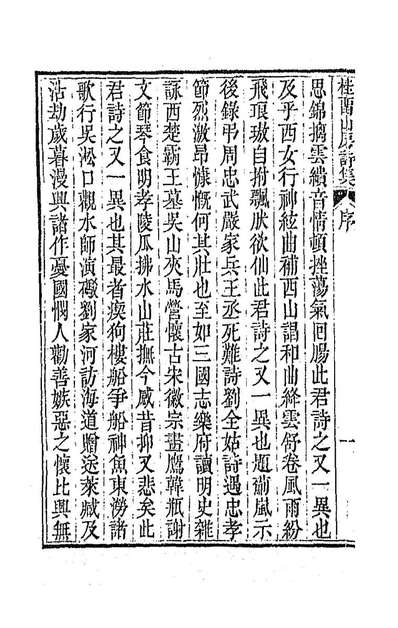 桂酉山房詩集 序 一
思錦摛雲繢音情頓挫蕩氣回腸此君詩之又一異也
及乎西女行神絃曲補西山謌和曲絳雲舒卷風雨紛
飛琅璈自拊飄肰欲仙此君詩之又一異也題前風示
後錄弔周忠武嚴家兵王丞死難詩劉全姑詩遇忠孝
節烈激昂慷慨何其壯也至如三國志樂府讀明史雜
詠西楚霸王墓吳山夾馬營懷古宋徽宗畫鷹韓瓶謝
文節琴食明孝陵瓜拂水山莊撫今感昔抑又悲矣此
君詩之又一異也其最者瘈狗樓船爭船神魚東澇諸
歌行吳淞口觀水師演礮劉家河訪海道贈送萊臧及
沽劫歲暮漫興諸作憂國憫人勸善嫉惡之懷比興無